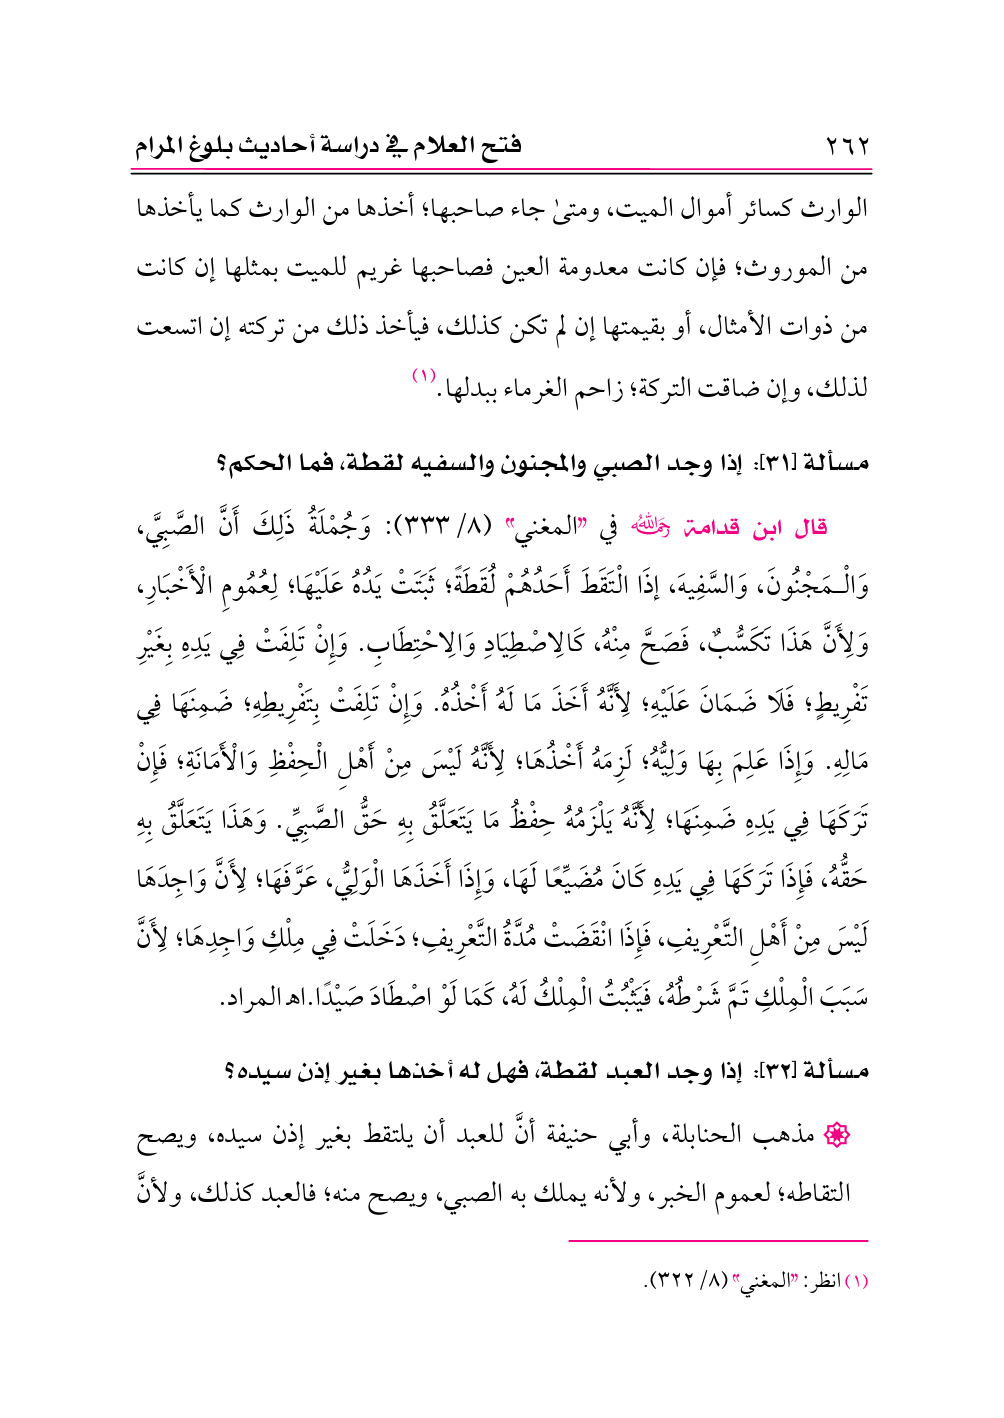 ٢٦٢ فتح العلام في دراسة أحاديث بلوغ المرام
الوارث كسائر أموال الميت، ومتىٰ جاء صاحبها؛ أخذها من الوارث كما يأخذها
من الموروث؛ فإن كانت معدومة العين فصاحبها غريم للميت بمثلها إن كانت
من ذوات الأمثال، أو بقيمتها إن لم تكن كذلك، فيأخذ ذلك من تركته إن اتسعت
لذلك، وإن ضاقت التركة؛ زاحم الغرماء ببدلها.(١)
مسألة [٣١]: إذا وجد الصبي والمجنون والسفيه لقطة، فما الحكم؟
قال ابن قدامة رحمه الله في "المغني" (٨/ ٣٣٣): وَجُمْلَةُ ذَلِكَ أَنَّ الصَّبِيَّ،
وَالْـمَجْنُونَ، وَالسَّفِيهَ، إذَا الْتَقَطَ أَحَدُهُمْ لُقَطَةً؛ ثَبَتَتْ يَدُهُ عَلَيْهَا؛ لِعُمُومِ الْأَخْبَارِ،
وَلِأَنَّ هَذَا تَكَسُّبٌ، فَصَحَّ مِنْهُ، كَالِاصْطِيَادِ وَالِاحْتِطَابِ. وَإِنْ تَلِفَتْ فِي يَدِهِ بِغَيْرِ
تَفْرِيطٍ؛ فَلَا ضَمَانَ عَلَيْهِ؛ لِأَنَّهُ أَخَذَ مَا لَهُ أَخْذُهُ. وَإِنْ تَلِفَتْ بِتَفْرِيطِهِ؛ ضَمِنَهَا فِي
مَالِهِ. وَإِذَا عَلِمَ بِهَا وَلِيُّهُ؛ لَزِمَهُ أَخْذُهَا؛ لِأَنَّهُ لَيْسَ مِنْ أَهْلِ الْحِفْظِ وَالْأَمَانَةِ؛ فَإِنْ
تَرَكَهَا فِي يَدِهِ ضَمِنَهَا؛ لِأَنَّهُ يَلْزَمُهُ حِفْظُ مَا يَتَعَلَّقُ بِهِ حَقُّ الصَّبِيِّ. وَهَذَا يَتَعَلَّقُ بِهِ
حَقُّهُ، فَإِذَا تَرَكَهَا فِي يَدِهِ كَانَ مُضَيِّعًا لَهَا، وَإِذَا أَخَذَهَا الْوَلِيُّ، عَرَّفَهَا؛ لِأَنَّ وَاجِدَهَا
لَيْسَ مِنْ أَهْلِ التَّعْرِيفِ، فَإِذَا انْقَضَتْ مُدَّةُ التَّعْرِيفِ؛ دَخَلَتْ فِي مِلْكِ وَاجِدِهَا؛ لِأَنَّ
سَبَبَ الْمِلْكِ تَمَّ شَرْطُهُ، فَيَثْبُتُ الْمِلْكُ لَهُ، كَمَا لَوْ اصْطَادَ صَيْدًا.اهـ المراد.
مسألة [٣٢]: إذا وجد العبد لقطة، فهل له أخذها بغير إذن سيده؟
مذهب الحنابلة، وأبي حنيفة أنَّ للعبد أن يلتقط بغير إذن سيده، ويصح
التقاطه؛ لعموم الخبر، ولأنه يملك به الصبي، ويصح منه؛ فالعبد كذلك، ولأنَّ
(١) انظر: "المغني" (٨/ ٣٢٢).